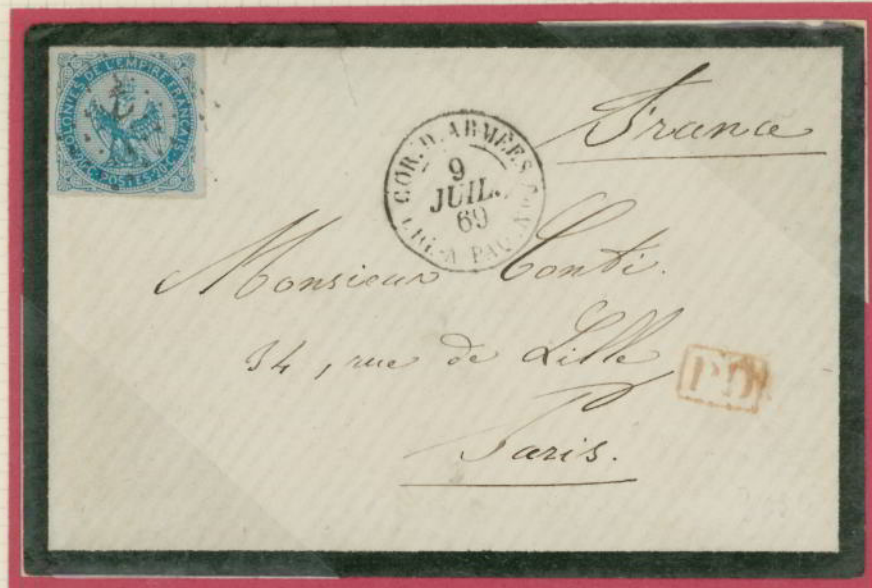 COLONIES DE L'EMPIRE FRANÇAIS
20C. POSTES. 20C.
COR. D. ARMÉES
9
JUIL.
69
France
Monsieur Conti.
34, rue de Lille
Paris.
PD